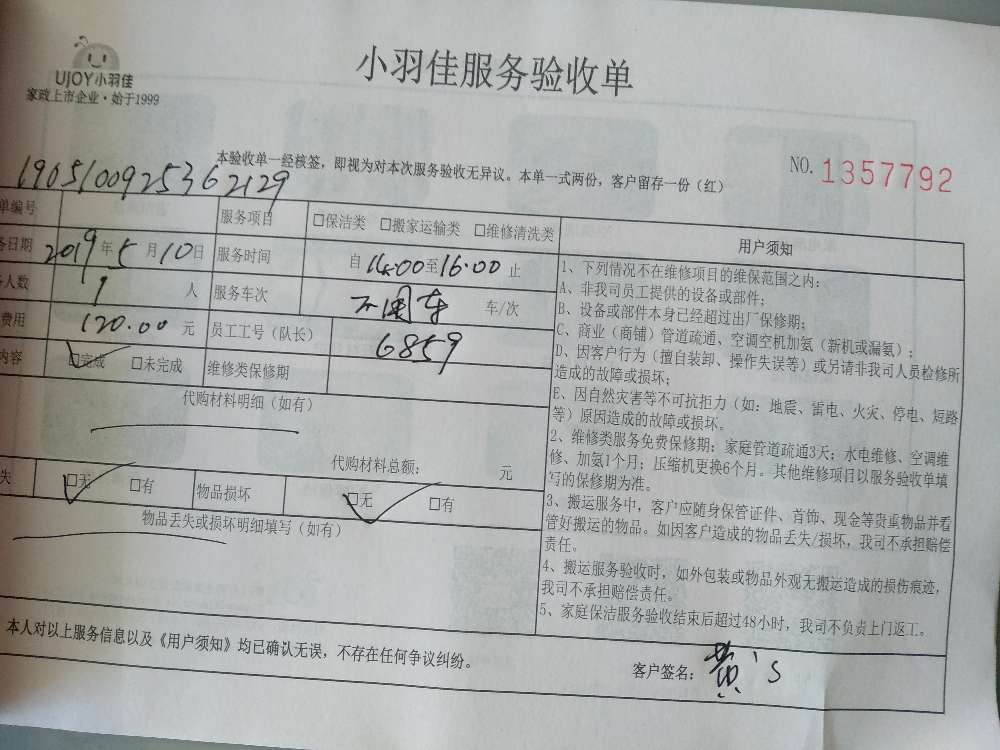 UJOY小羽佳
家政上市企业·始于1999
小羽佳服务验收单
本验收单一经核签，即视为对本次服务验收无异议。本单一式两份，客户留存一份（红）
NO. 1357792
190510092536 2129
单编号 服务项目 □保洁类 □搬家运输类 □维修清洗类
务日期 2019年5月10日 服务时间 自14:00至16:00止
人数 1人 服务车次 不用车 车/次
费用 120.00元 员工工号（队长） 6859
内容 □完成 □未完成 维修类保修期
代购材料明细（如有）
代购材料总额： 元
失 □无 □有 物品损坏 □无 □有
物品丢失或损坏明细填写（如有）
用户须知
1、下列情况不在维修项目的维保范围之内：
A、非我司员工提供的设备或部件；
B、设备或部件本身已经超过出厂保修期；
C、商业（商铺）管道疏通、空调空机加氨（新机或漏氨）；
D、因客户行为（擅自装卸、操作失误等）或另请非我司人员检修所
造成的故障或损坏；
E、因自然灾害等不可抗拒力（如：地震、雷电、火灾、停电、短路
等）原因造成的故障或损坏。
2、维修类服务免费保修期：家庭管道疏通3天；水电维修、空调维
修、加氨1个月；压缩机更换6个月。其他维修项目以服务验收单填
写的保修期为准。
3、搬运服务中，客户应随身保管证件、首饰、现金等贵重物品并看
管好搬运的物品。如因客户造成的物品丢失/损坏，我司不承担赔偿
责任。
4、搬运服务验收时，如外包装或物品外观无搬运造成的损伤痕迹，
我司不承担赔偿责任。
5、家庭保洁服务验收结束后超过48小时，我司不负责上门返工。
本人对以上服务信息以及《用户须知》均已确认无误，不存在任何争议纠纷。
客户签名：黄's